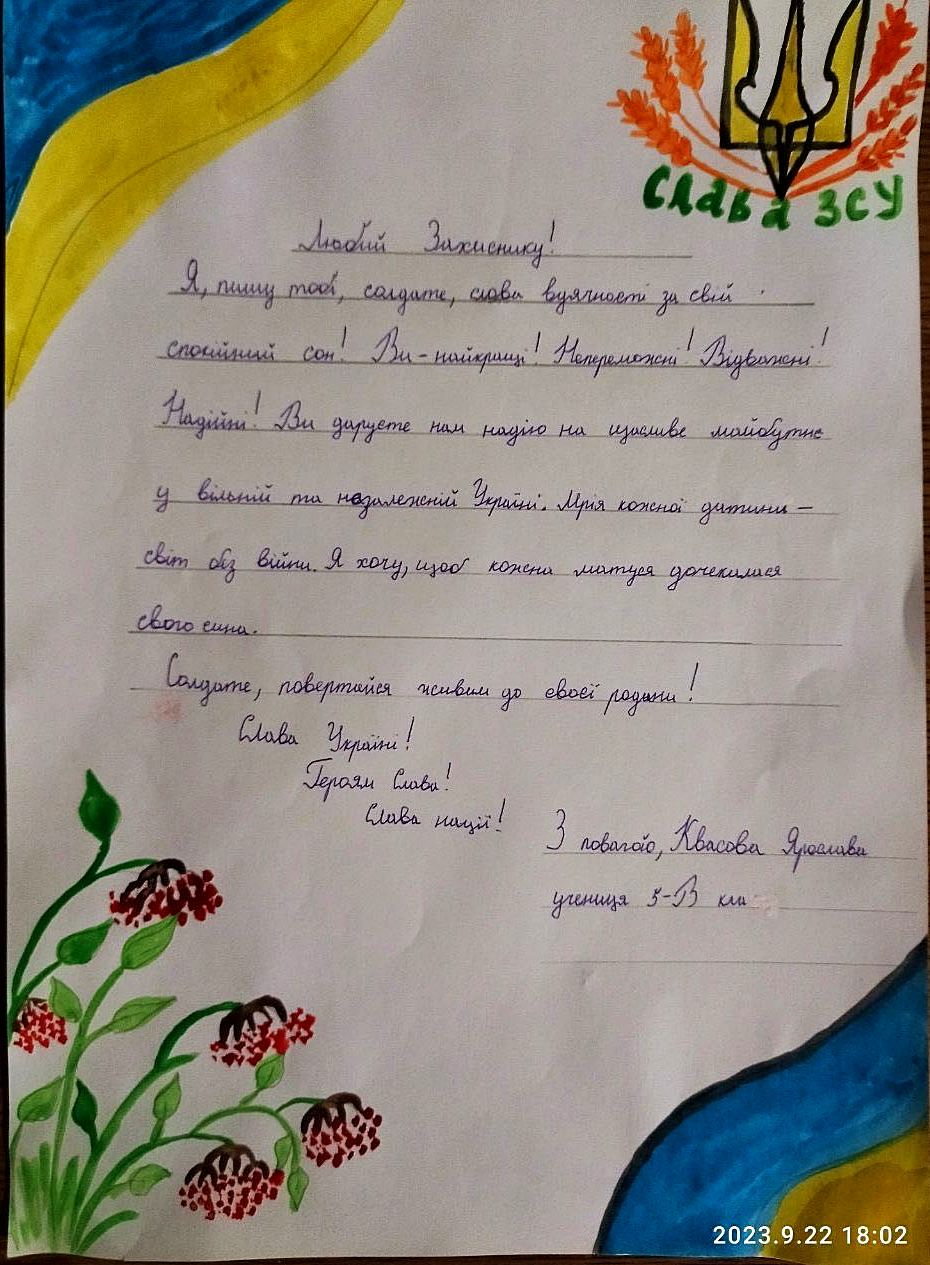 СЛАВА ЗСУ
Любий Захиснику!
Я, пишу тобі, солдате, слова вдячності за свій
спокійний сон! Ви - найкращі! Непереможні! Відважні!
Надійні! Ви даруєте нам надію на щасливе майбутнє
у вільній та незалежній Україні. Мрія кожної дитини –
світ без війни. Я хочу, щоб кожна матуся дочекалася
свого сина.
Солдате, повертайся живим до своєї родини!
Слава Україні!
Героям Слава!
Слава нації!
З повагою, Квасова Ярослава
учениця 5-В кла
2023.9.22 18:02